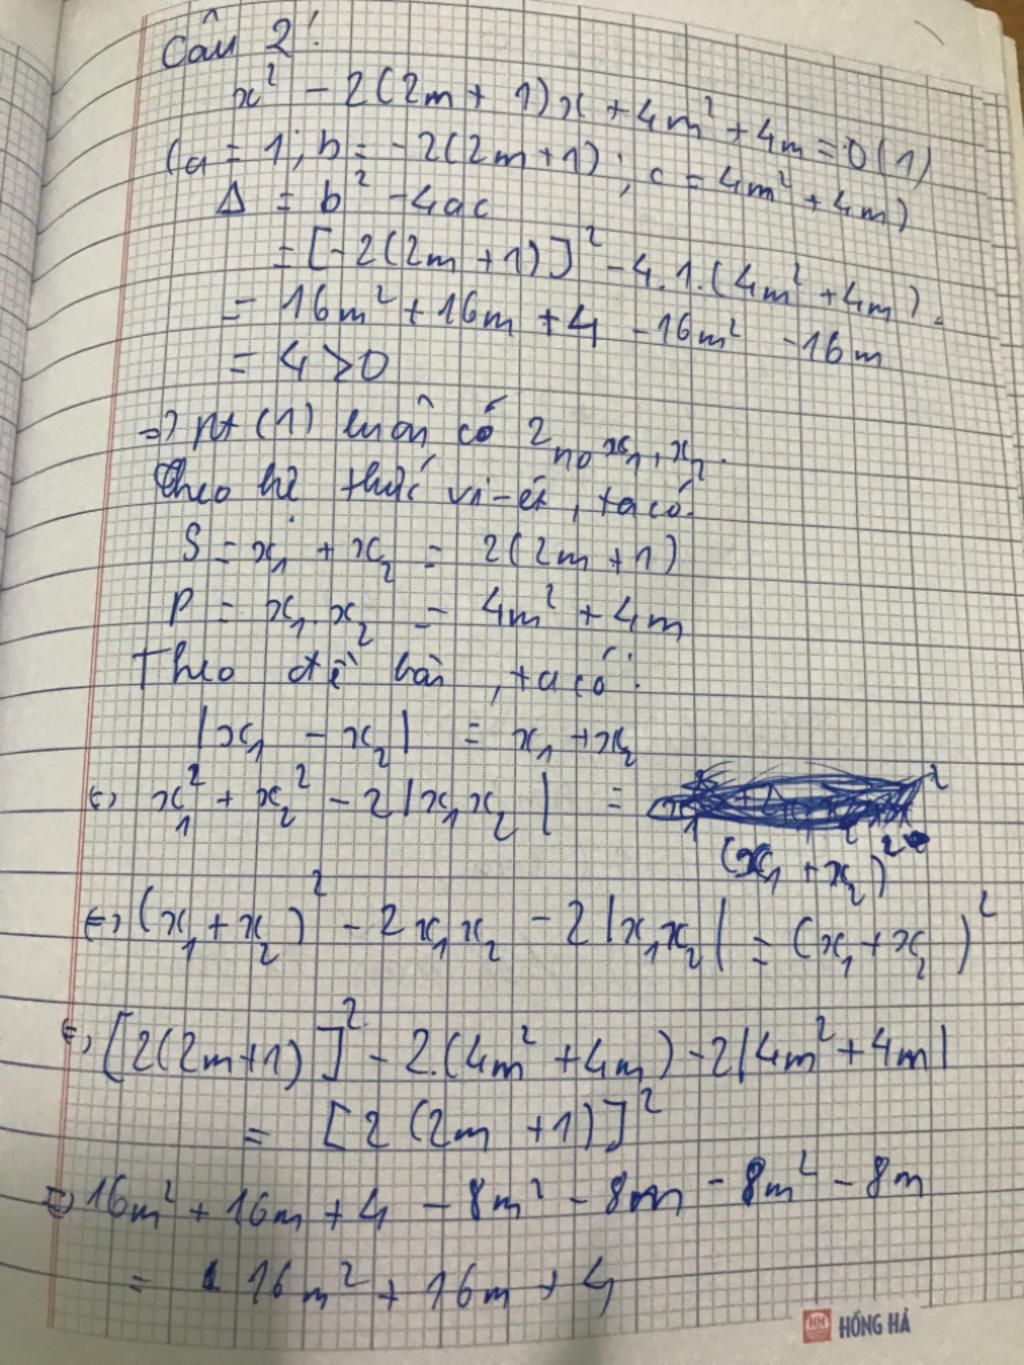 Câu 2:
x² - 2(2m + 1)x + 4m² + 4m = 0 (1)
(a = 1; b = -2(2m+1); c = 4m² + 4m)
Δ = b² - 4ac
= [-2(2m+1)]² - 4.1.(4m² + 4m).
= 16m² + 16m + 4 - 16m² - 16m
= 4 > 0
=> pt (1) luôn có 2 no x₁, x₂.
Theo hệ thức vi-ét, ta có:
S = x₁ + x₂ = 2(2m+1)
P = x₁.x₂ = 4m² + 4m
Theo đề bài, ta có:
|x₁ - x₂| = x₁ + x₂
<=> x₁² + x₂² - 2|x₁x₂| =
(x₁ + x₂)²
<=> (x₁ + x₂)² - 2x₁x₂ - 2|x₁x₂| = (x₁ + x₂)²
<=> [2(2m+1)]² - 2.(4m² + 4m) - 2|4m² + 4m|
= [2(2m + 1)]²
<=> 16m² + 16m + 4 - 8m² - 8m - 8m² - 8m
= 16m² + 16m + 4
HN HỒNG HÀ